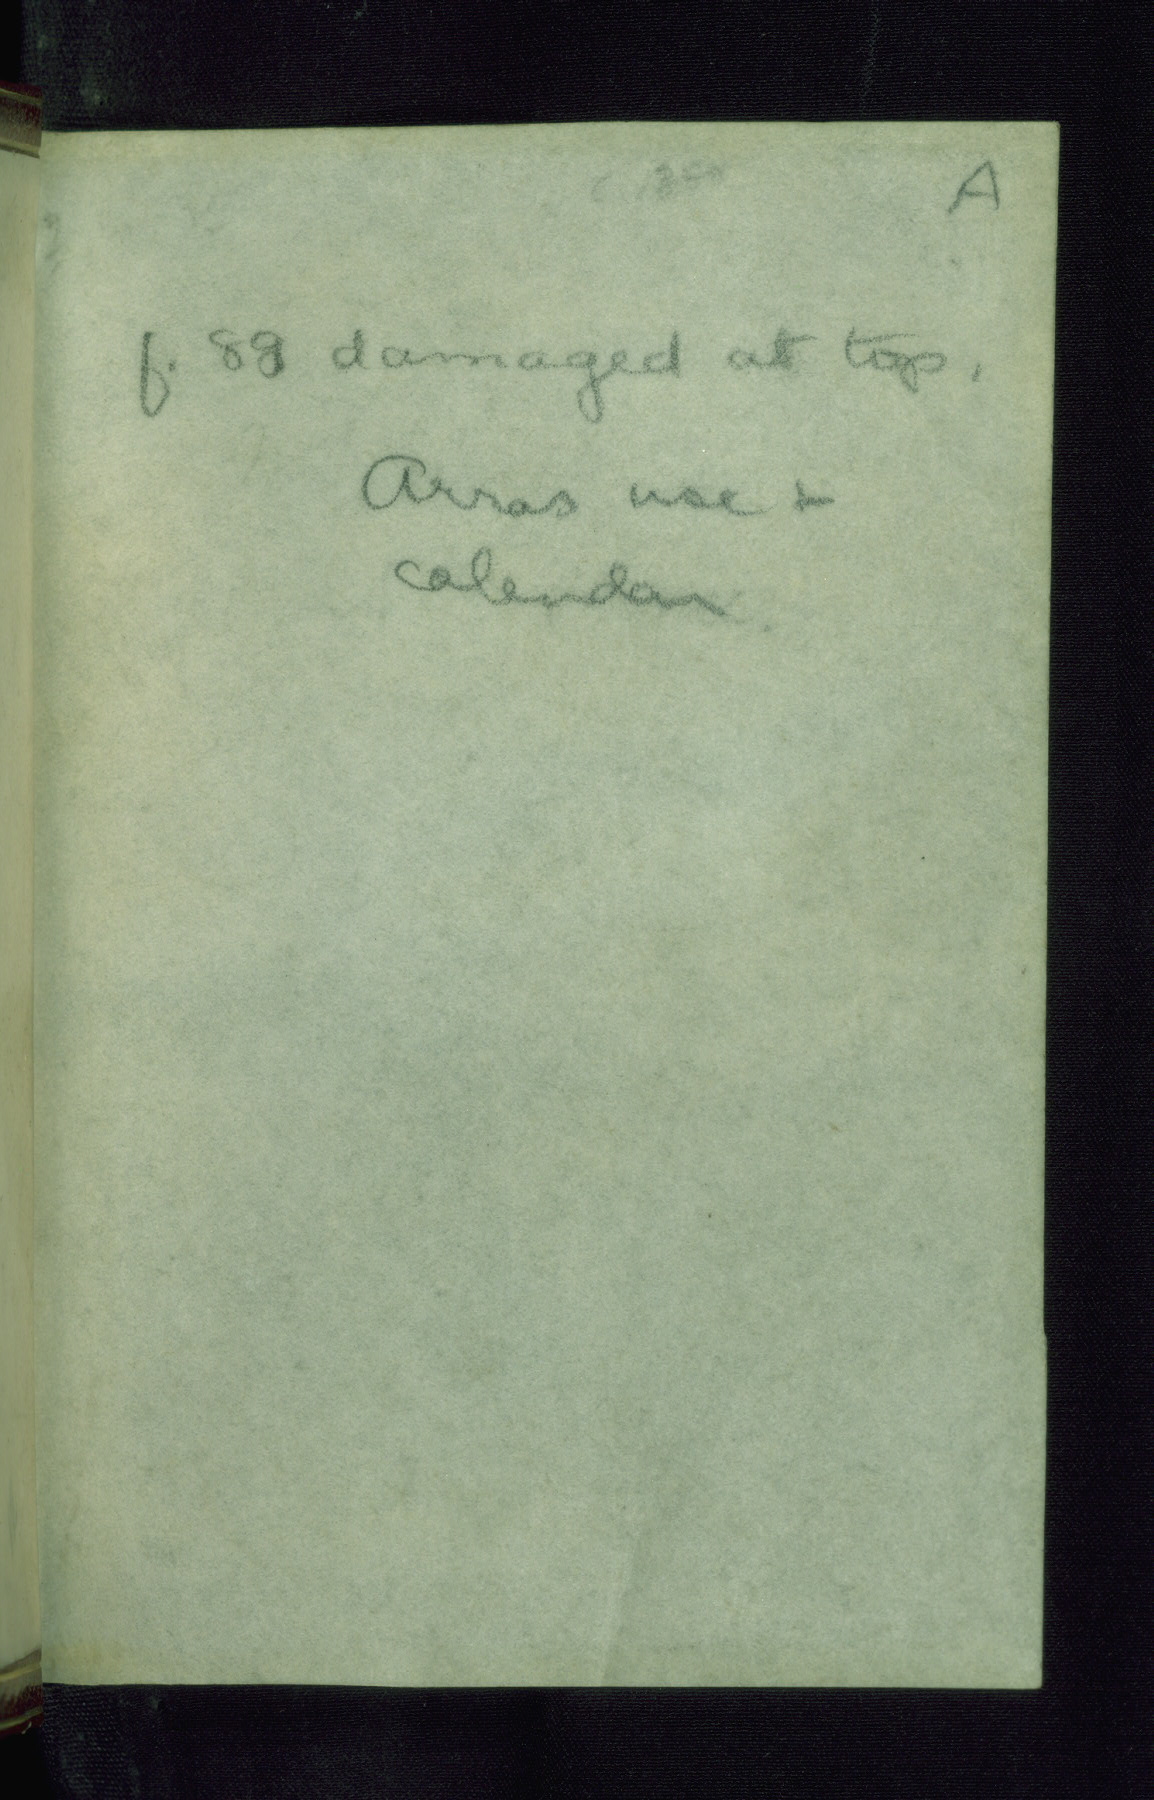 A
f. 88 damaged at top.
Arras use &
calendar